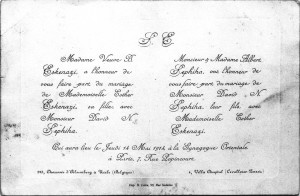 S E
Madame Veuve B.
Eskenazi, a l'honneur de
vous faire part du mariage
de Mademoiselle Esther
Eskenazi, sa fille, avec
Monsieur David N.
Sephiha.
Monsieur & Madame Albert
Sephiha, ont l'honneur de
vous faire part du mariage
de Monsieur David N.
Sephiha, leur fils, avec
Mademoiselle Esther
Eskenazi.
Qui aura lieu le Jeudi 14 Mai 1914 à la Synagogue Orientale
à Paris, 7, Rue Popincourt.
Chaussée d'Alsemberg à Uccle (Belgique)
4, Villa Chaptal (Levallois-Perret)